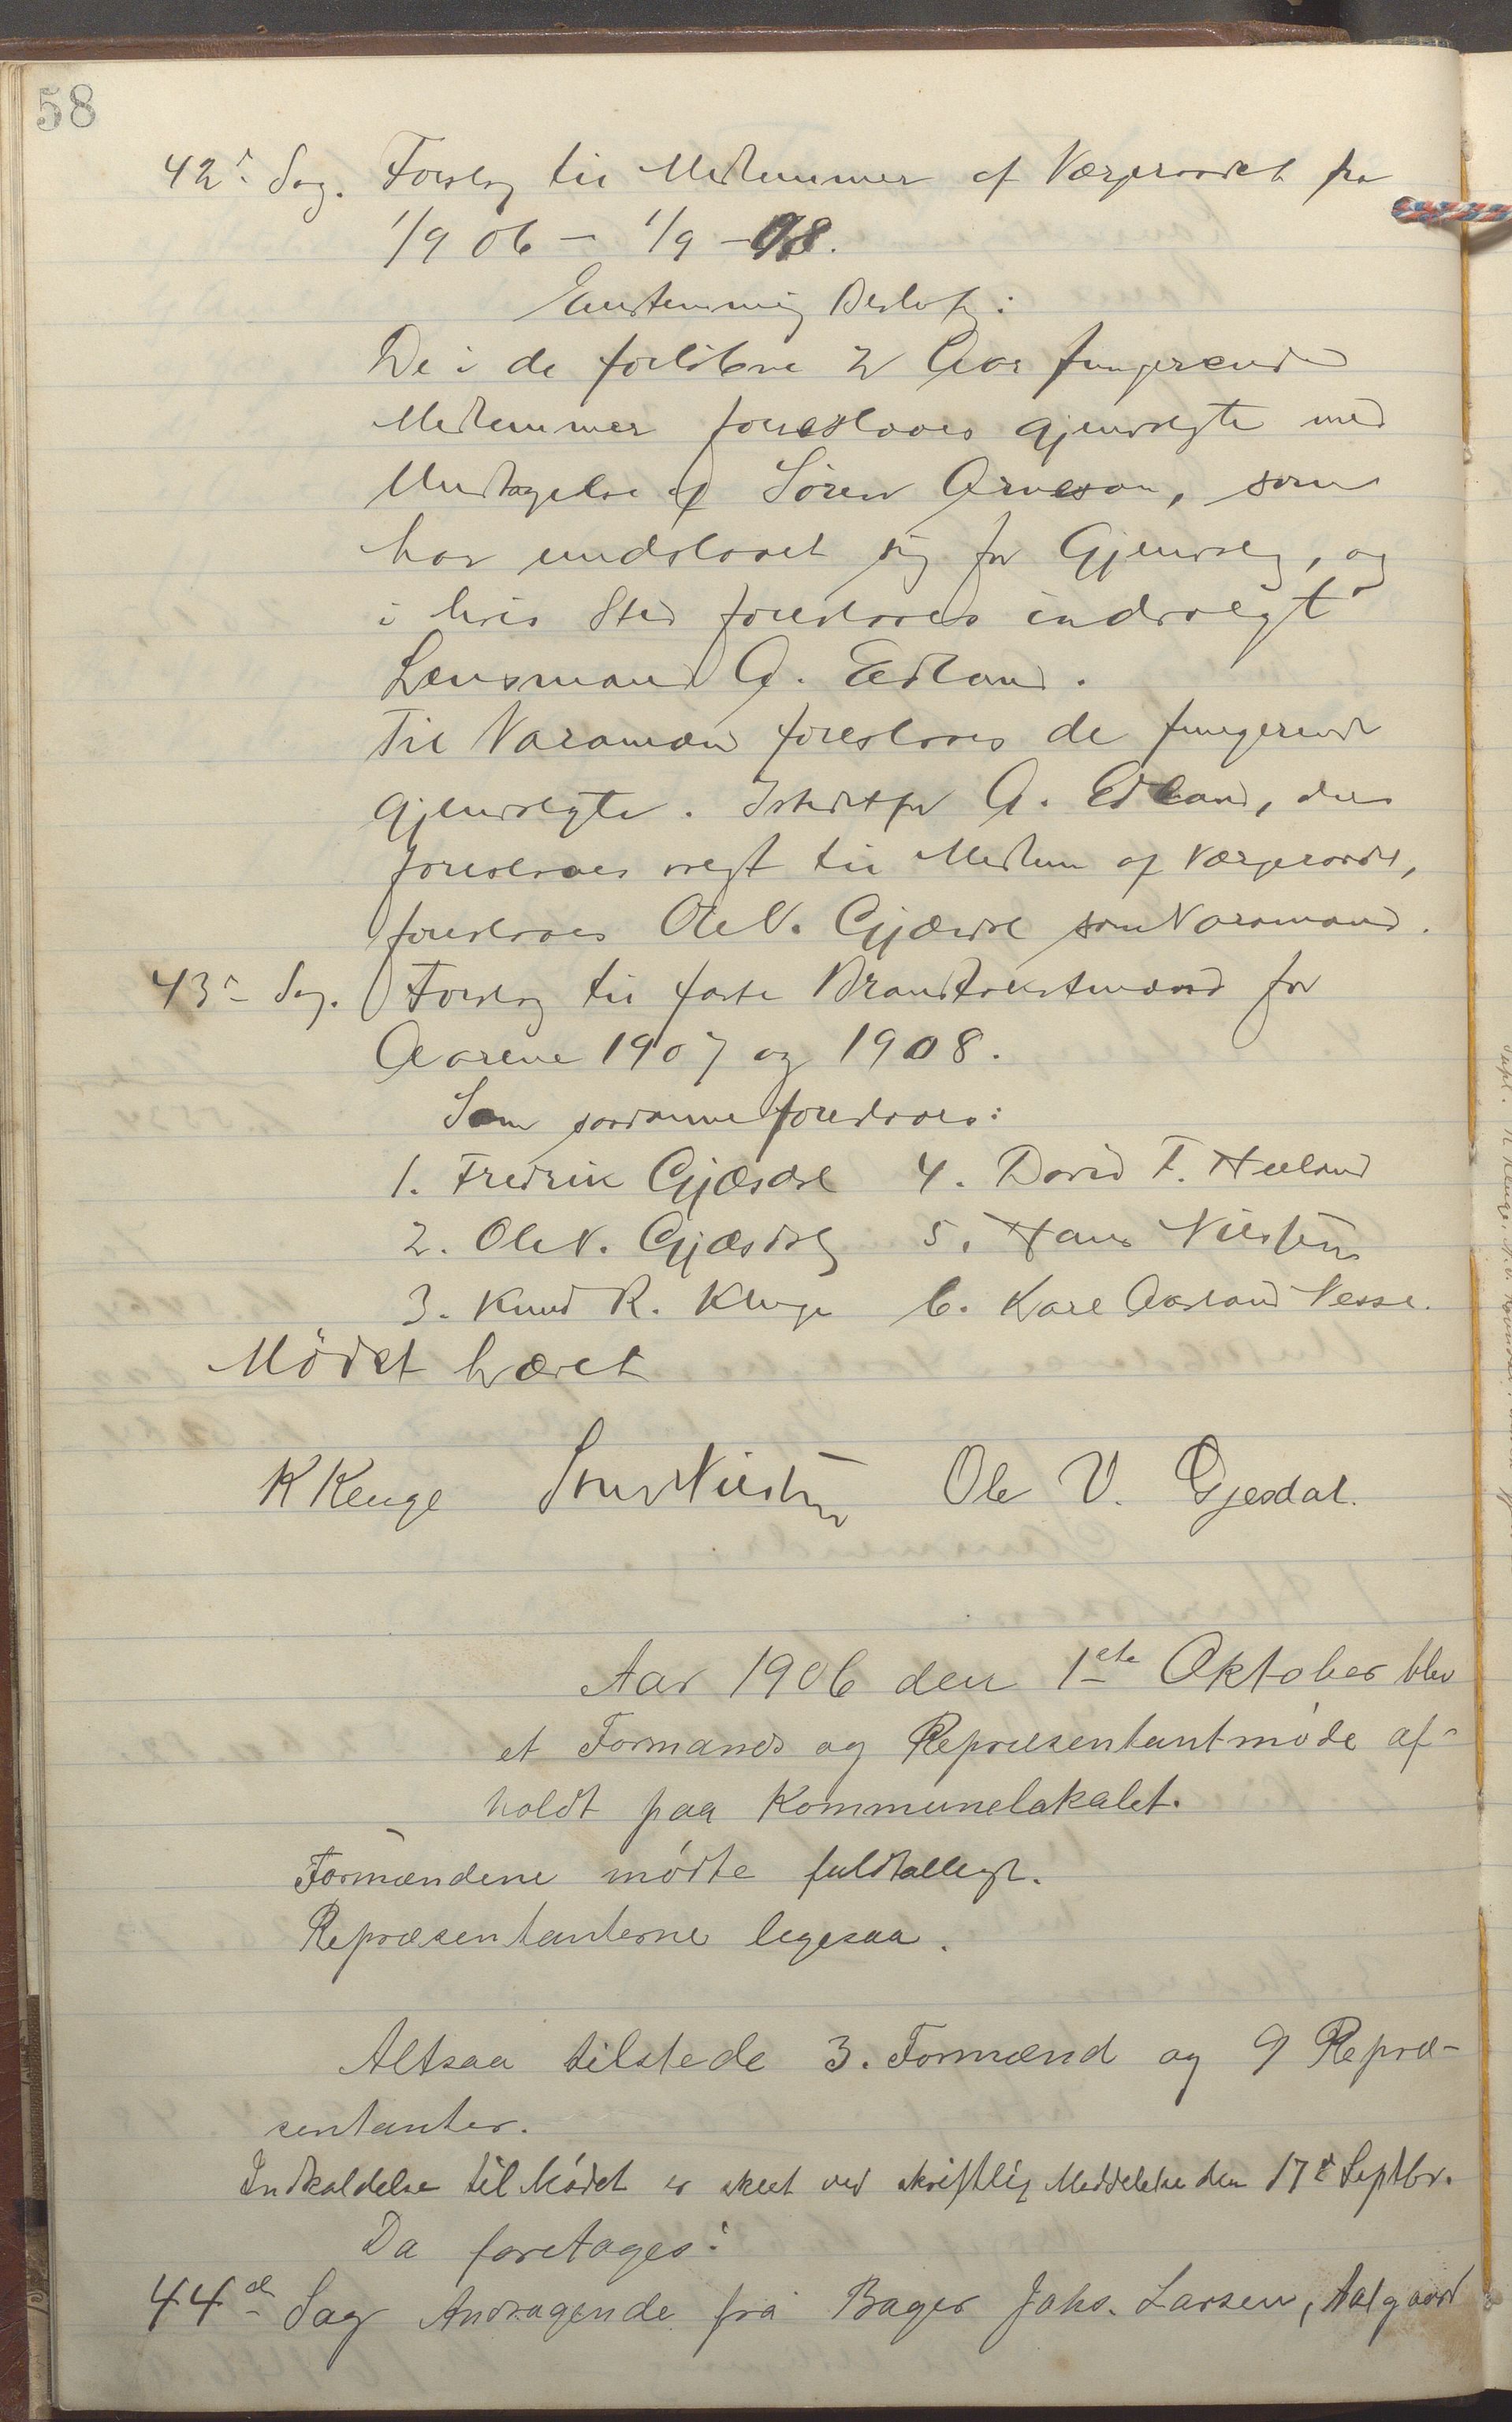 58
42d Sag. Forslag til Medlemmer af Værgeraadet fra
1/9 06 – 1/9 – 08.
Enstemmig Beslutn:
De i de forløbne 2 Aar fungerende
Medlemmer foreslaaes gjenvalgte med
Undtagelse af Sören Arneson, som
har undslaaet sig for Gjenvalg, og
i hvis Sted foreslaaes indvalgt
Lensmand A. Edland.
Til Varamænd foreslaaes de fungerende
gjenvalgte. Istedetfor A. Edland, der
foreslaaes valgt til Medlem af Værgeraadet,
foreslaaes Ole V. Gjæsdal som Varamand.
43d Sag. Forslag til faste Brandtakstmænd for
Aarene 1907 og 1908.
Som saadanne foreslaaes:
1. Fredrik Gjæsdal 4. David T. Næland
2. Ole V. Gjæsdal 5. Hans Nilssen
3. Knud R. Kluge 6. Karl Aasland Nesse.
Mödet hævet
K Kluge Ole V. Gjesdal.
Aar 1906 den 1ste Oktober blev
et Formands og Repræsentantmøde af-
holdt paa Kommunelokalet.
Formændene mødte fuldtalligt.
Repræsentanterne legesaa.
Altsaa tilstede 3. Formænd og 9 Repræ-
sentanter.
Indkaldelse til Mödet er skeet ved skriftlig Meddelelse den 17d Septbr.
Da foretages:
44de Sag Andragende fra Bager Johs. Larsen, Aalgaard